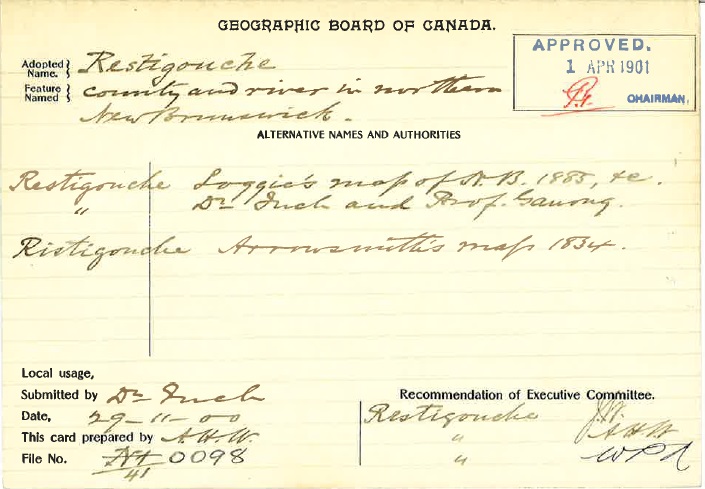 GEOGRAPHIC BOARD OF CANADA.
Adopted Name. } Restigouche
Feature Named } county and river in northern
New Brunswick.
APPROVED.
1 APR 1901
CHAIRMAN.
ALTERNATIVE NAMES AND AUTHORITIES
Restigouche Loggie's map of N.B. 1885, &c.
" Dr Inch and Prof. Ganong.
Ristigouche Arrowsmith's map 1834.
Local usage,
Submitted by Dr Inch
Date, 29-11-00
This card prepared by A.H.W.
File No. 0098
41
Recommendation of Executive Committee.
Restigouche J.W.
" A H W
"